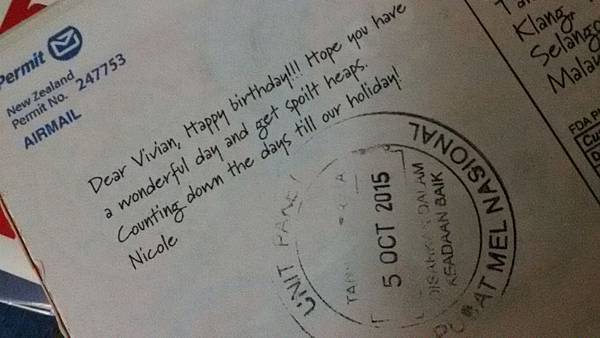 Permit
New Zealand
Permit No. 247753
AIRMAIL
Dear Vivian, Happy birthday!!! Hope you have
a wonderful day and get spoilt heaps.
Counting down the days till our holiday!
Nicole
UNIT
MEL NASIONAL
5 OCT 2015
DALAM
KEADAAN BAIK
Klang,
FDA